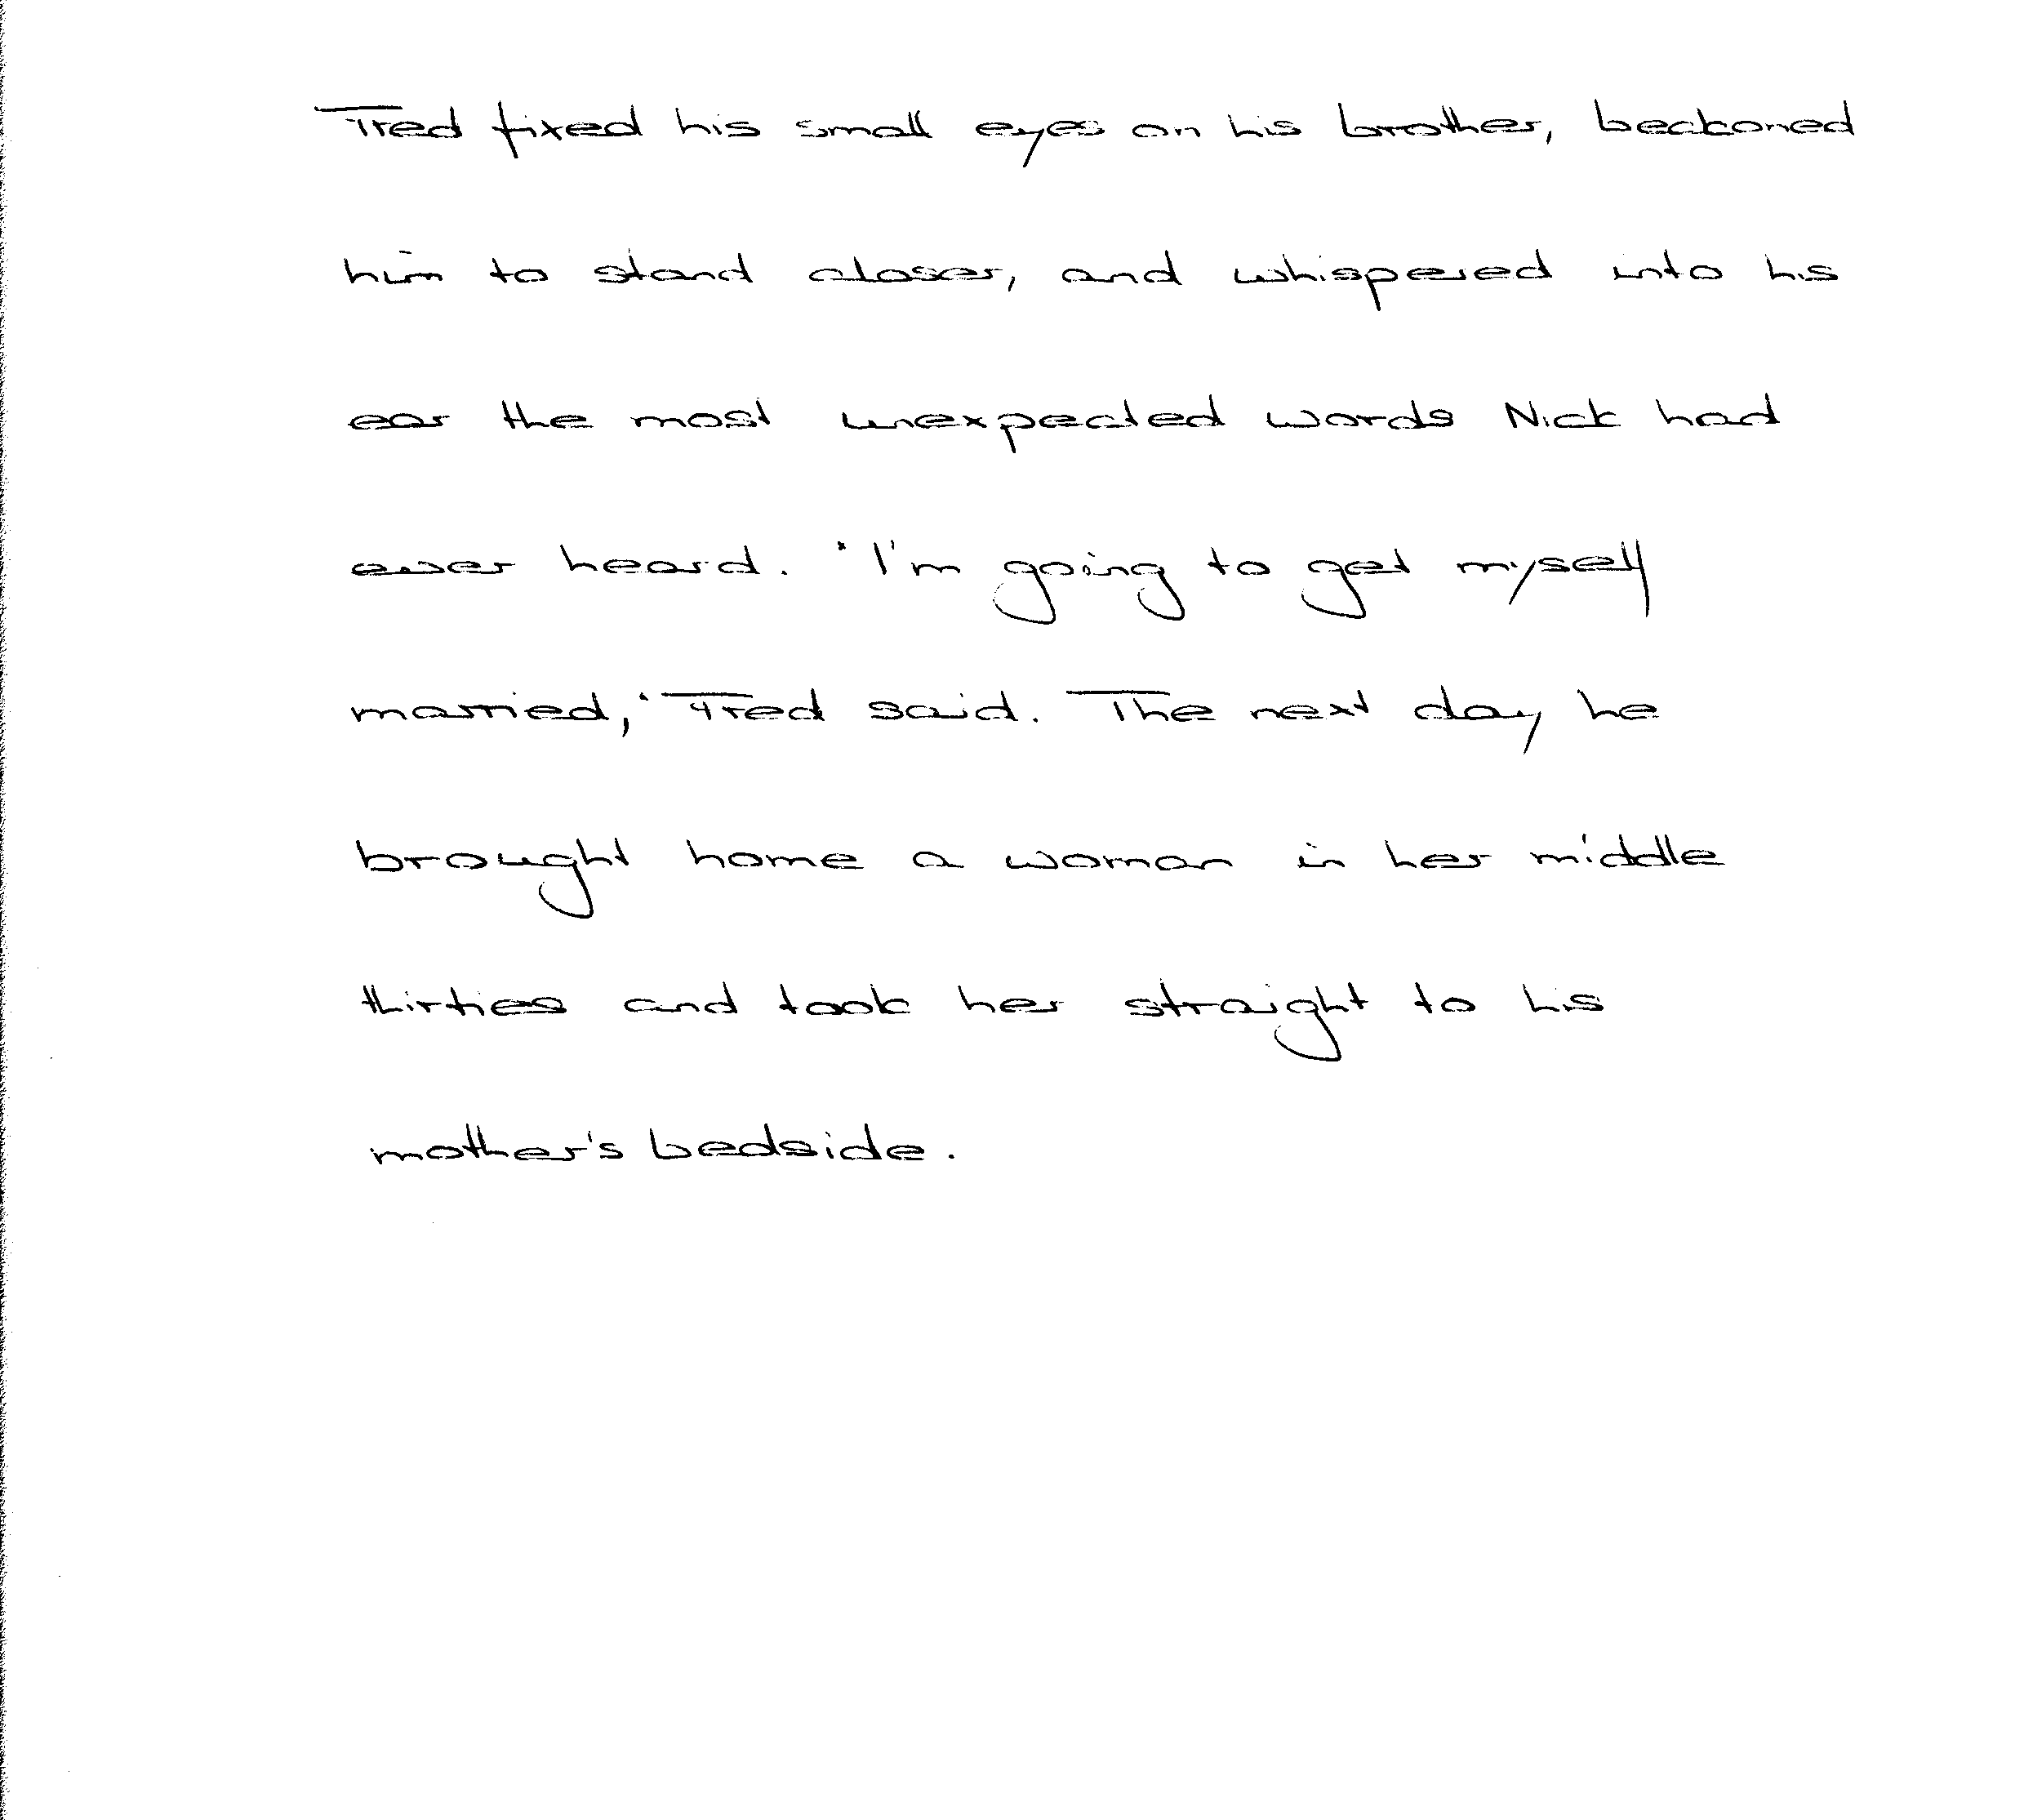 Fred fixed his small eyes on his brother, beckoned
him to stand closer, and whispered into his
ear the most unexpected words Nick had
ever heard. "I'm going to get myself
married," Fred said. The next day he
brought home a woman in her middle
thirties and took her straight to his
mother's bedside.